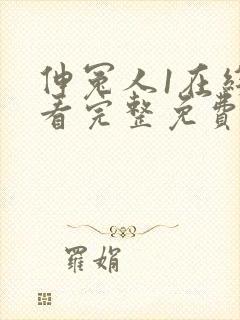 伸冤人1在線
看完整免費
羅娟